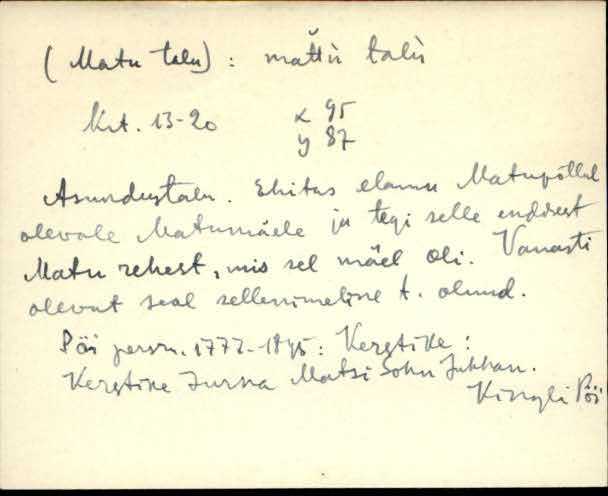 (Matu talu): mattù talù
Krt. 13-20 x 95
y 87
Asundustalu. Ehitas elamu Matupõllul
olevale Matumäele ja tegi selle endisest
Matu rehest, mis sel mäel oli. Vanasti
olevat seal sellenimeline t. olnud.
Pöi persn. 1777-1895: Kergtike:
Kergtike Jurna Matsi Sohn Juhhan.
Pöi